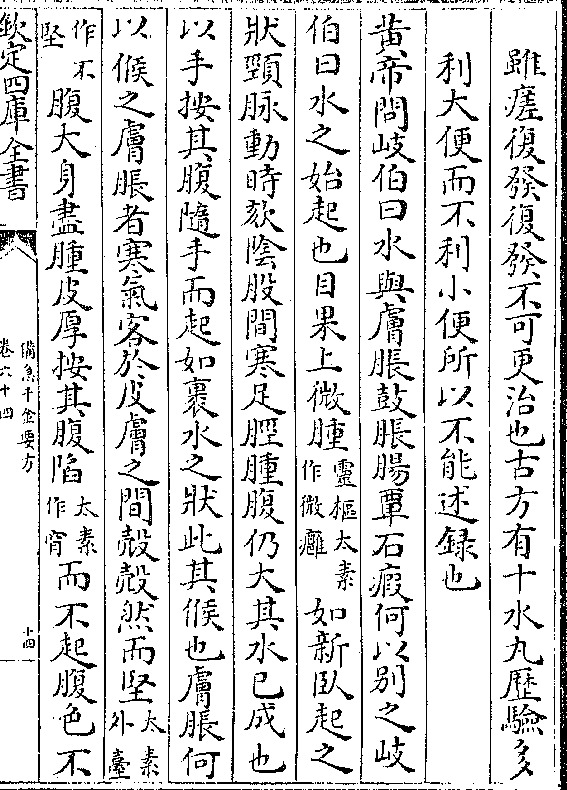 雖瘥復發復發不可更治也古方有十水丸歴驗多
利大便而不利小便所以不能述録也
黄帝問岐伯曰水與膚脹鼓脹腸覃石瘕何以别之岐
伯曰水之始起也目果上微腫靈樞太素作微癰如新臥起之
狀頸脉動時欬陰股間寒足脛腫腹仍大其水已成也
以手按其腹隨手而起如裹水之狀此其候也膚脹何
以候之膚脹者寒氣客於皮膚之間殻殻然而堅太素外臺
作不堅腹大身盡腫皮厚按其腹陷太素作窅而不起腹色不
欽定四庫全書
備急千金要方
卷六十四
十四